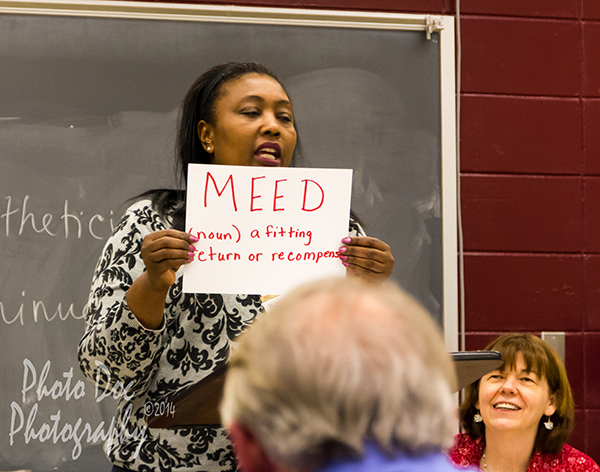 MEED
(noun) a fitting
return or recompens
thetici
minu
Photo Doc
Photography ©2014